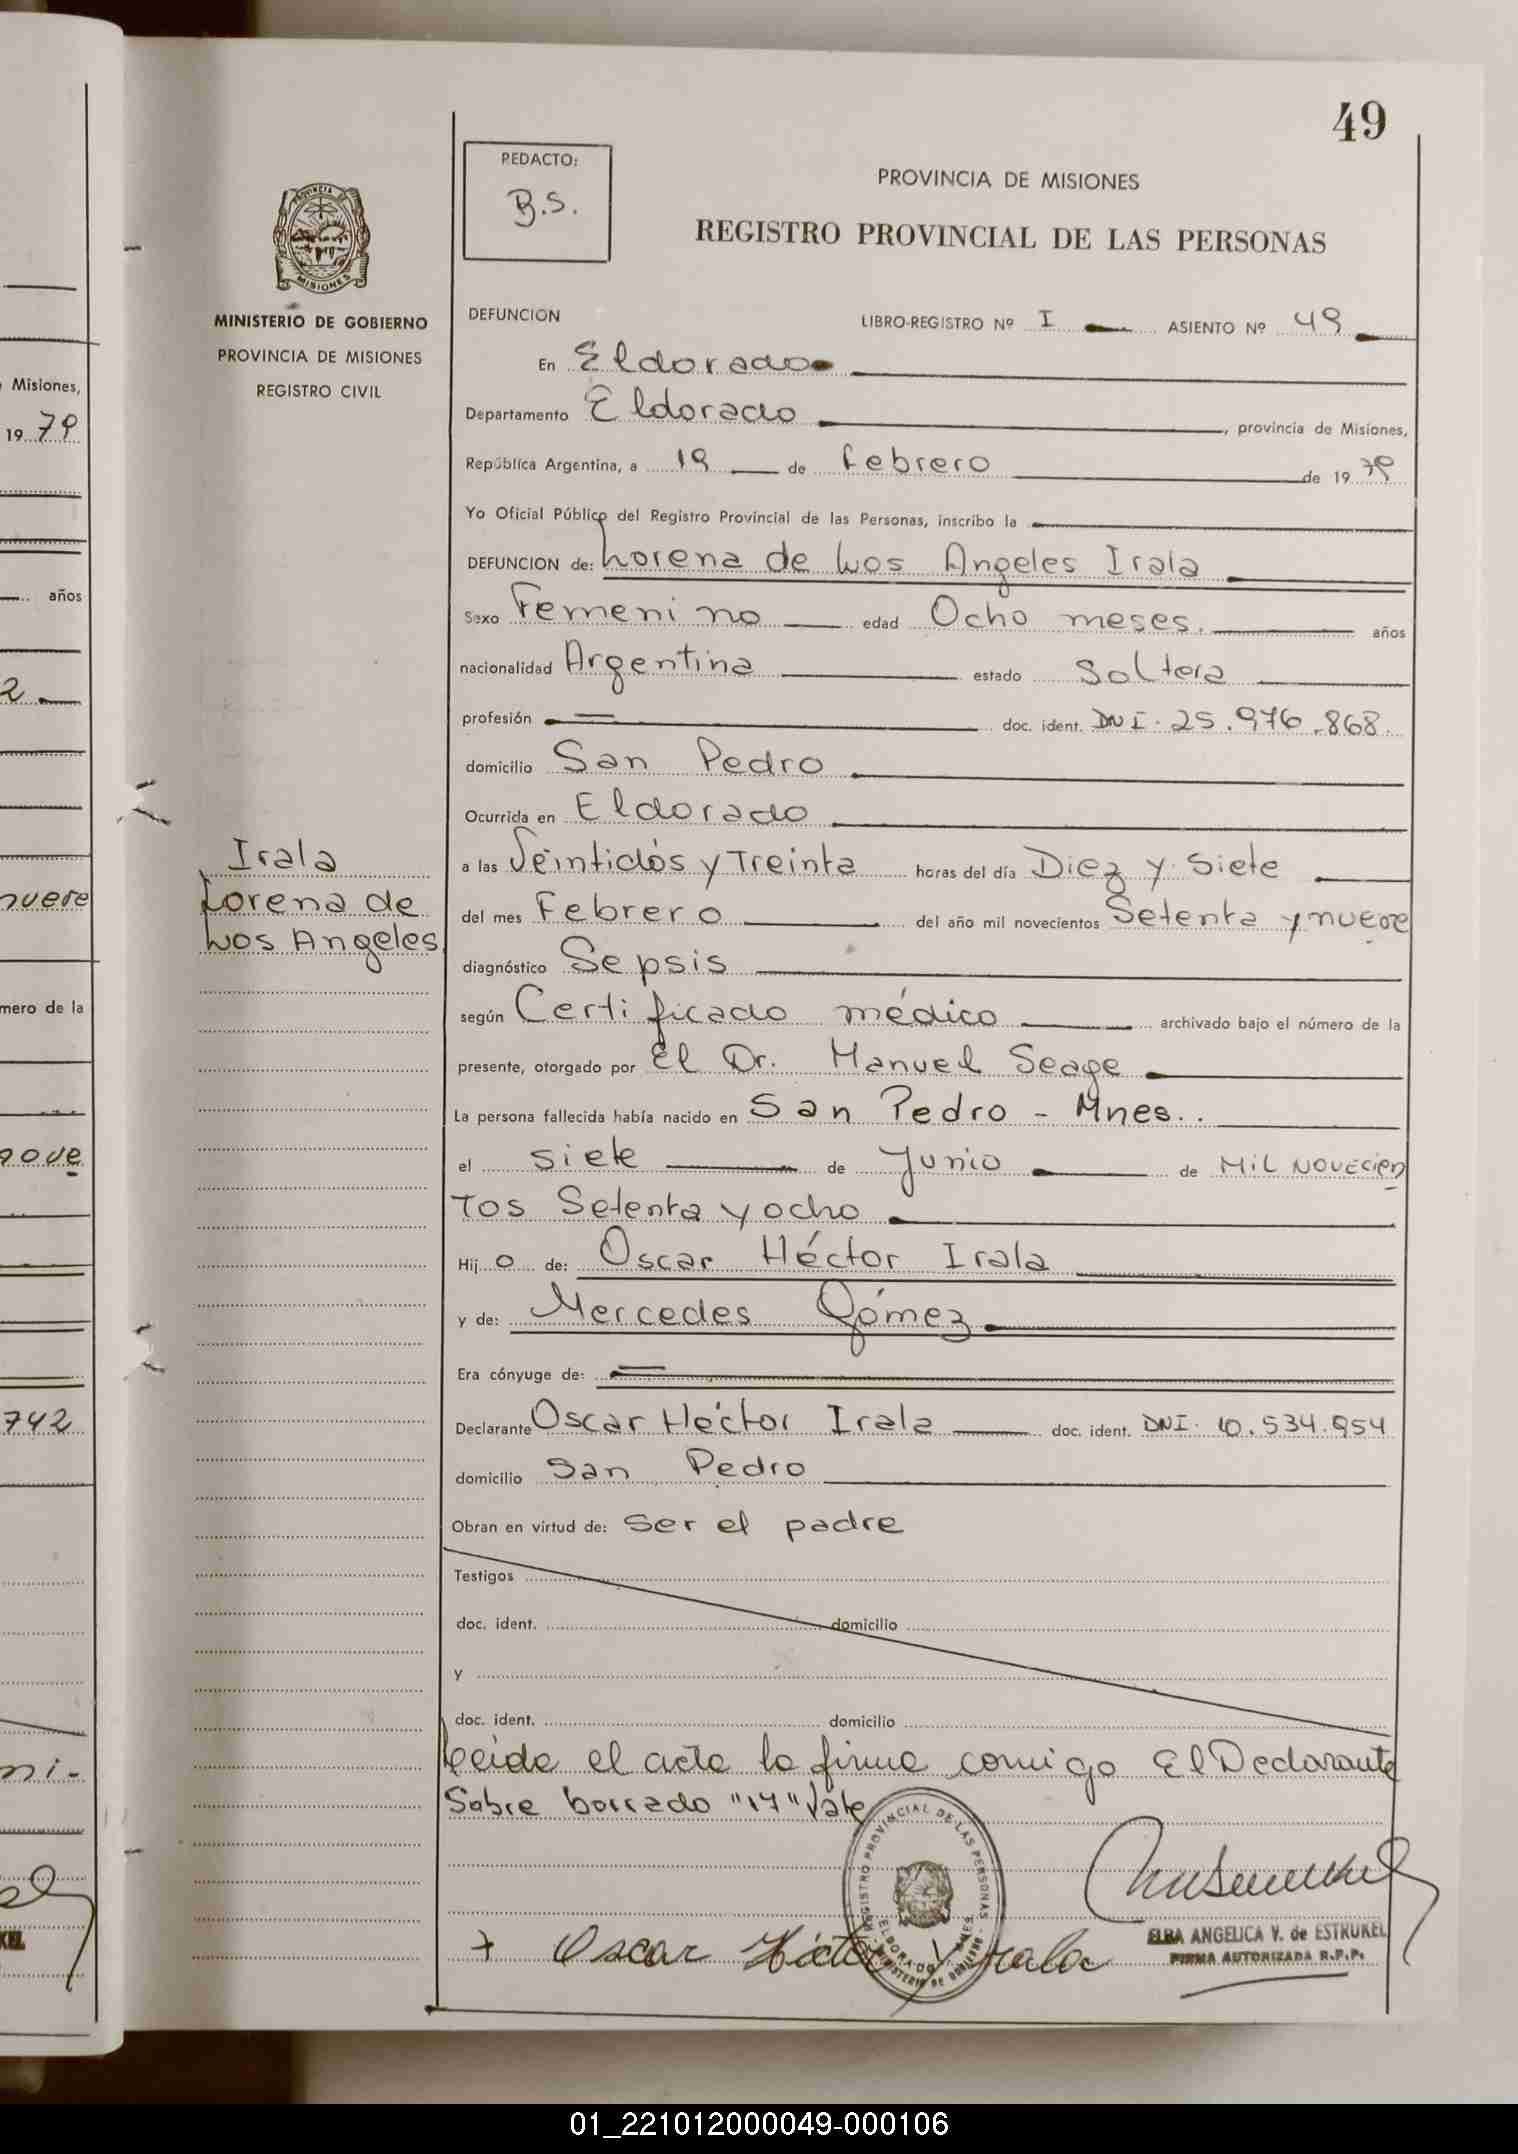 49
REDACTO:
B.S.
PROVINCIA DE MISIONES
REGISTRO PROVINCIAL DE LAS PERSONAS
PROVINCIA DE
MISIONES
MINISTERIO DE GOBIERNO
PROVINCIA DE MISIONES
REGISTRO CIVIL
DEFUNCION
LIBRO-REGISTRO Nº I ASIENTO Nº 49
En Eldorado
Departamento Eldorado, provincia de Misiones,
República Argentina, a 19 de Febrero de 1979
Yo Oficial Público del Registro Provincial de las Personas, inscribo la
DEFUNCION de: Lorena de Los Angeles Irala
Sexo Femenino edad Ocho meses. años
nacionalidad Argentina estado Soltera
profesión = doc. ident. DNI. 25.976.868
domicilio San Pedro
Ocurrida en Eldorado
a las Veintidós y Treinta horas del día Diez y Siete
del mes Febrero del año mil novecientos Setenta y nueve
diagnóstico Sepsis
según Certificado médico archivado bajo el número de la
presente, otorgado por El Dr. Manuel Seage
La persona fallecida había nacido en San Pedro - Mnes.
el siete de Junio de Mil novecien
tos Setenta y ocho
Hijo de: Oscar Héctor Irala
y de: Mercedes Gómez
Era cónyuge de: =
Declarante Oscar Héctor Irala doc. ident. DNI. 10.534.954
domicilio San Pedro
Obran en virtud de: Ser el padre
Testigos
doc. ident. domicilio
y
doc. ident. domicilio
Leida el acta la firma comigo El Declarante
Sobre borrado "17" Vale
Irala
Lorena de
Los Angeles
REGISTRO PROVINCIAL DE LAS PERSONAS
ELDORADO
MINISTERIO DE GOBIERNO
+ Oscar Héctor Irala
ELBA ANGELICA V. de ESTRUKEL
FIRMA AUTORIZADA R.P.P.
Misiones,
1979
años
2
nueve
mero de la
nove
742
ni-
KEL
01_221012000049-000106